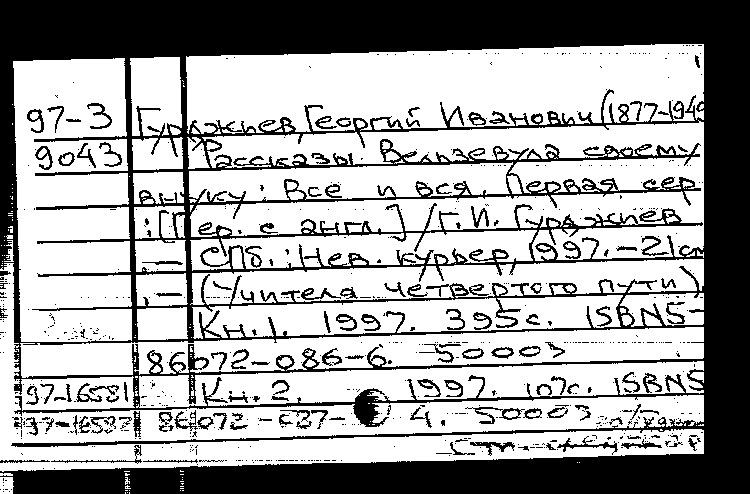 97-3 Гурджиев, Георгий Иванович (1877-1949
9043 Рассказы Вельзевула своему
внуку: Все и вся, Первая сер
:[Пер. с англ.] / Г. И. Гурджиев
.— СПб.: Нев. курьер, 1997. – 21 см
.— (Учителя четвертого пути).
Кн. 1. 1997. 395с. ISBN5-
86072-086-6. 5000э
97-16581 Кн. 2. 1997. 107с. ISBN5
97-16582 86072-087- 4. 5000э